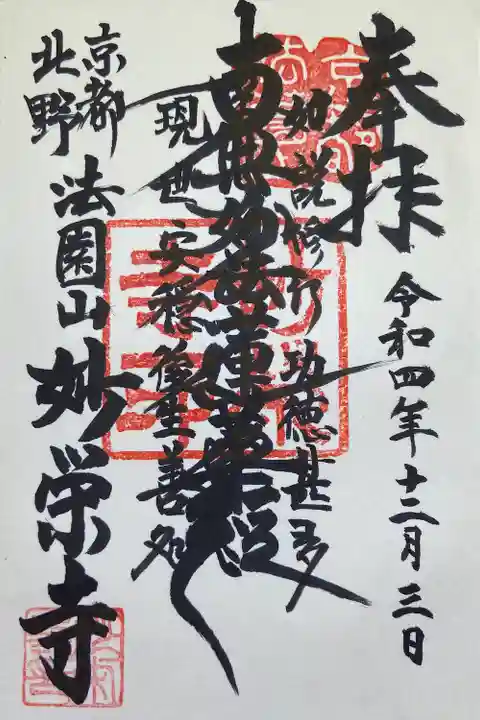 奉拝
令和四年十二月三日
如説修行功徳甚多
南無妙法蓮華経
現世安穏後生善処
京都
北野
法園山妙栄寺